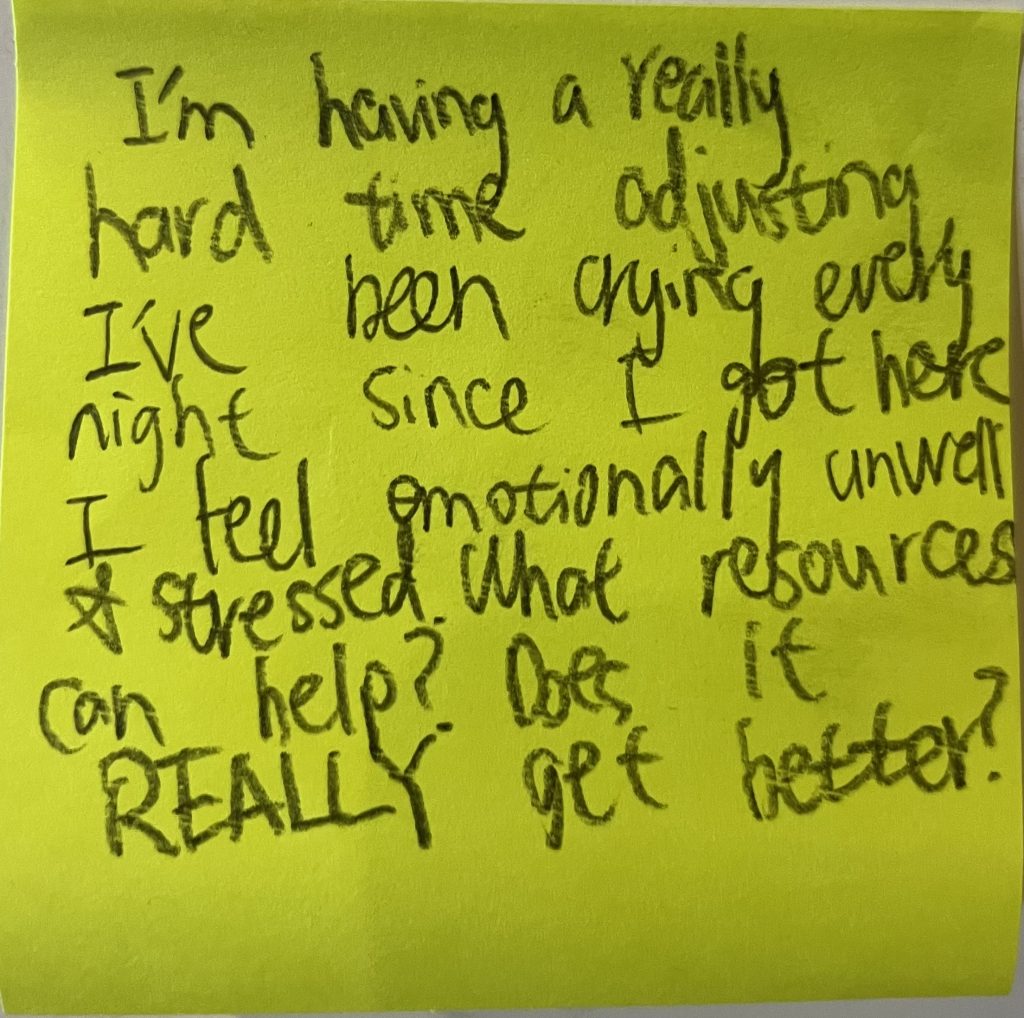 I'm having a really
hard time adjusting
I've been crying every
night since I got here
I feel emotionally unwell
& stressed. What resources
can help? Does it
REALLY get better?